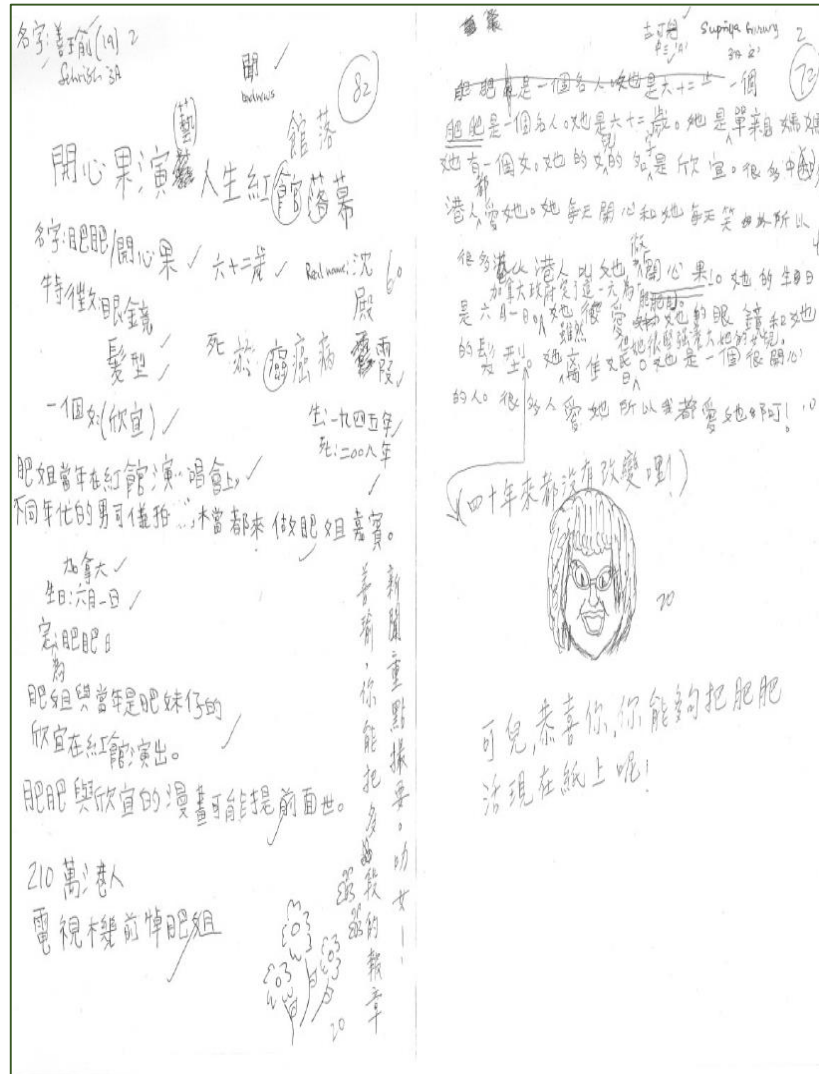 名字:善瑜(19) 2
3A
聞
82
館落
藝
開心果演藝人生紅館落幕
名字:肥肥/開心果
六十二歲
Real name:沈殿霞
60
特徵:眼鏡
髮型
死於癌病
一個女(欣宜)
生:一九四五年
死:二00八年
肥姐當年在紅館演唱會上。
不同年代的男司儀拍檔都來做肥姐嘉賓。
加拿大
生日:六月一日
定為肥肥日
肥姐與當年是肥妹仔的
欣宜在紅館演出。
肥肥與欣宜的漫畫可能提前面世。
210萬港人
電視機前悼肥姐
善瑜,你能把多段的報章
新聞重點撮要。叻女!!
20
可兒 Supriya Gurung 2
3A
72
肥肥是一個名人。她是六十二歲
一個
肥肥是一個名人。她是六十二歲。她是單親媽媽
她有一個女。她的女兒的名子是欣宜。很多中國
港人都愛她。她每天開心和她每天笑 所以
很多港人叫她做"開心果"。她的生日日
是六月一日。加拿大政府定了這一天為肥肥日。她很愛她的眼鏡和她
的髮型。雖然她離婚 她很堅強養大她的女兒。她也是一個很開心
的人。很多人愛她 所以我都愛她
(四十年來都沒有改變哩!)
20
可兒,恭喜你,你能夠把肥肥
活現在紙上呢!